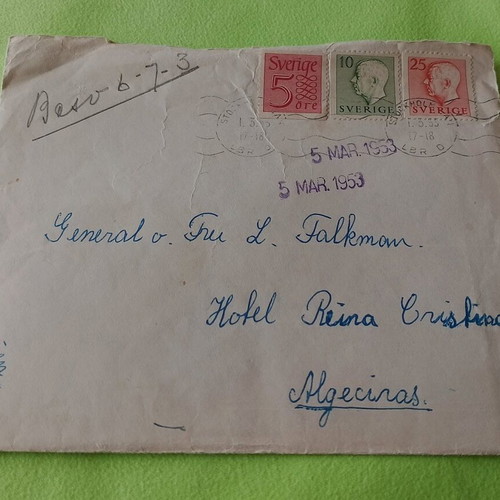 Sverige 5 öre
10 SVERIGE
25 SVERIGE
6-7-3
1.3.53
17-18
5 MAR. 1953
5 MAR. 1953
General o. Fru L. Falkman.
Hotel Reina Cristina
Algeciras.